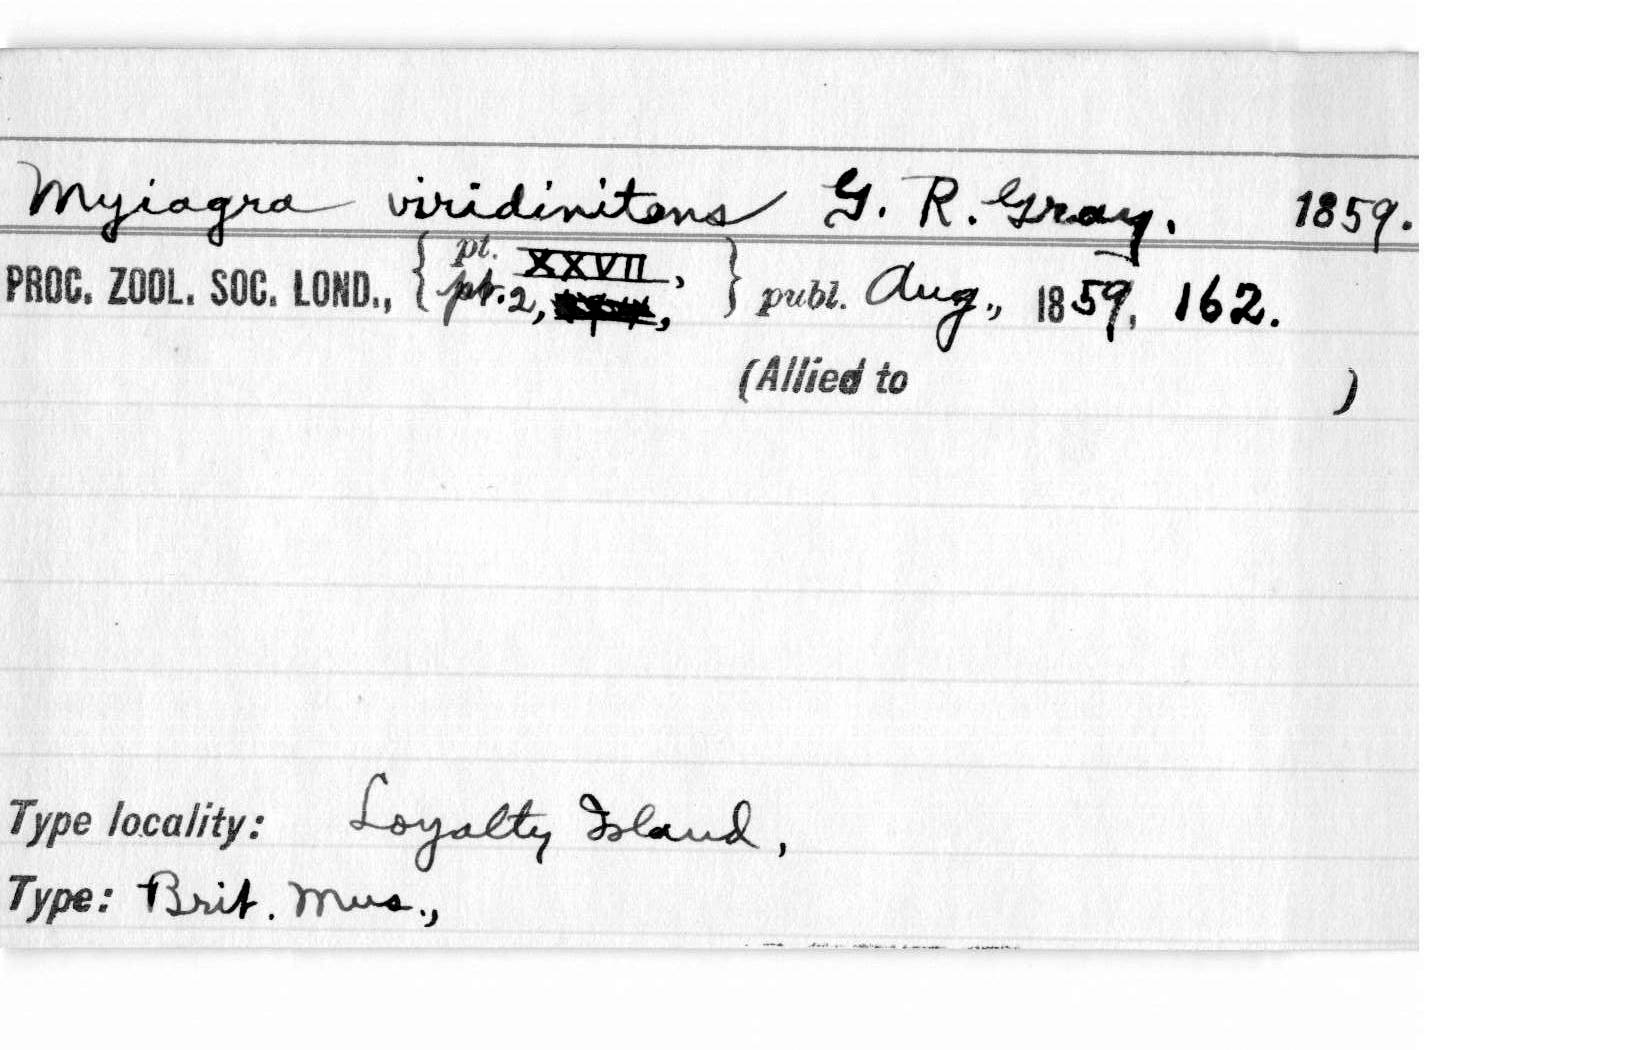 Myiagra viridinitens G. R. Gray. 1859.
PROC. ZOOL. SOC. LOND., { pt. XXVII, } publ. Aug., 1859, 162.
pt. 2, ,
(Allied to )
Type locality: Loyalty Island,
Type: Brit. Mus.,